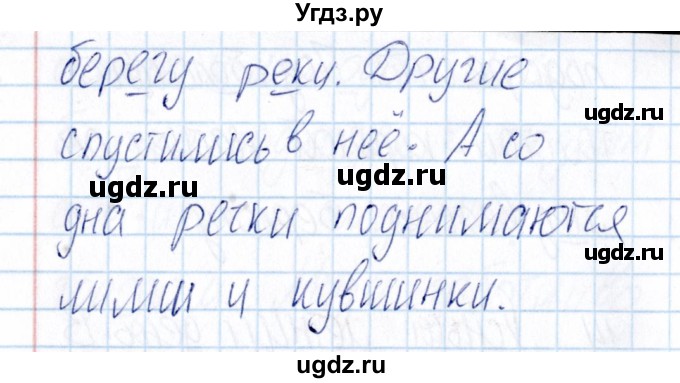 Угдз.ру
берегу реки. Другие
спустились в неё. А со
ugdz.ru ugdz.ru ugdz.ru
дна речки поднимаются
ugdz.ru ugdz.ru
лилии и кувшинки.
ugdz.ru